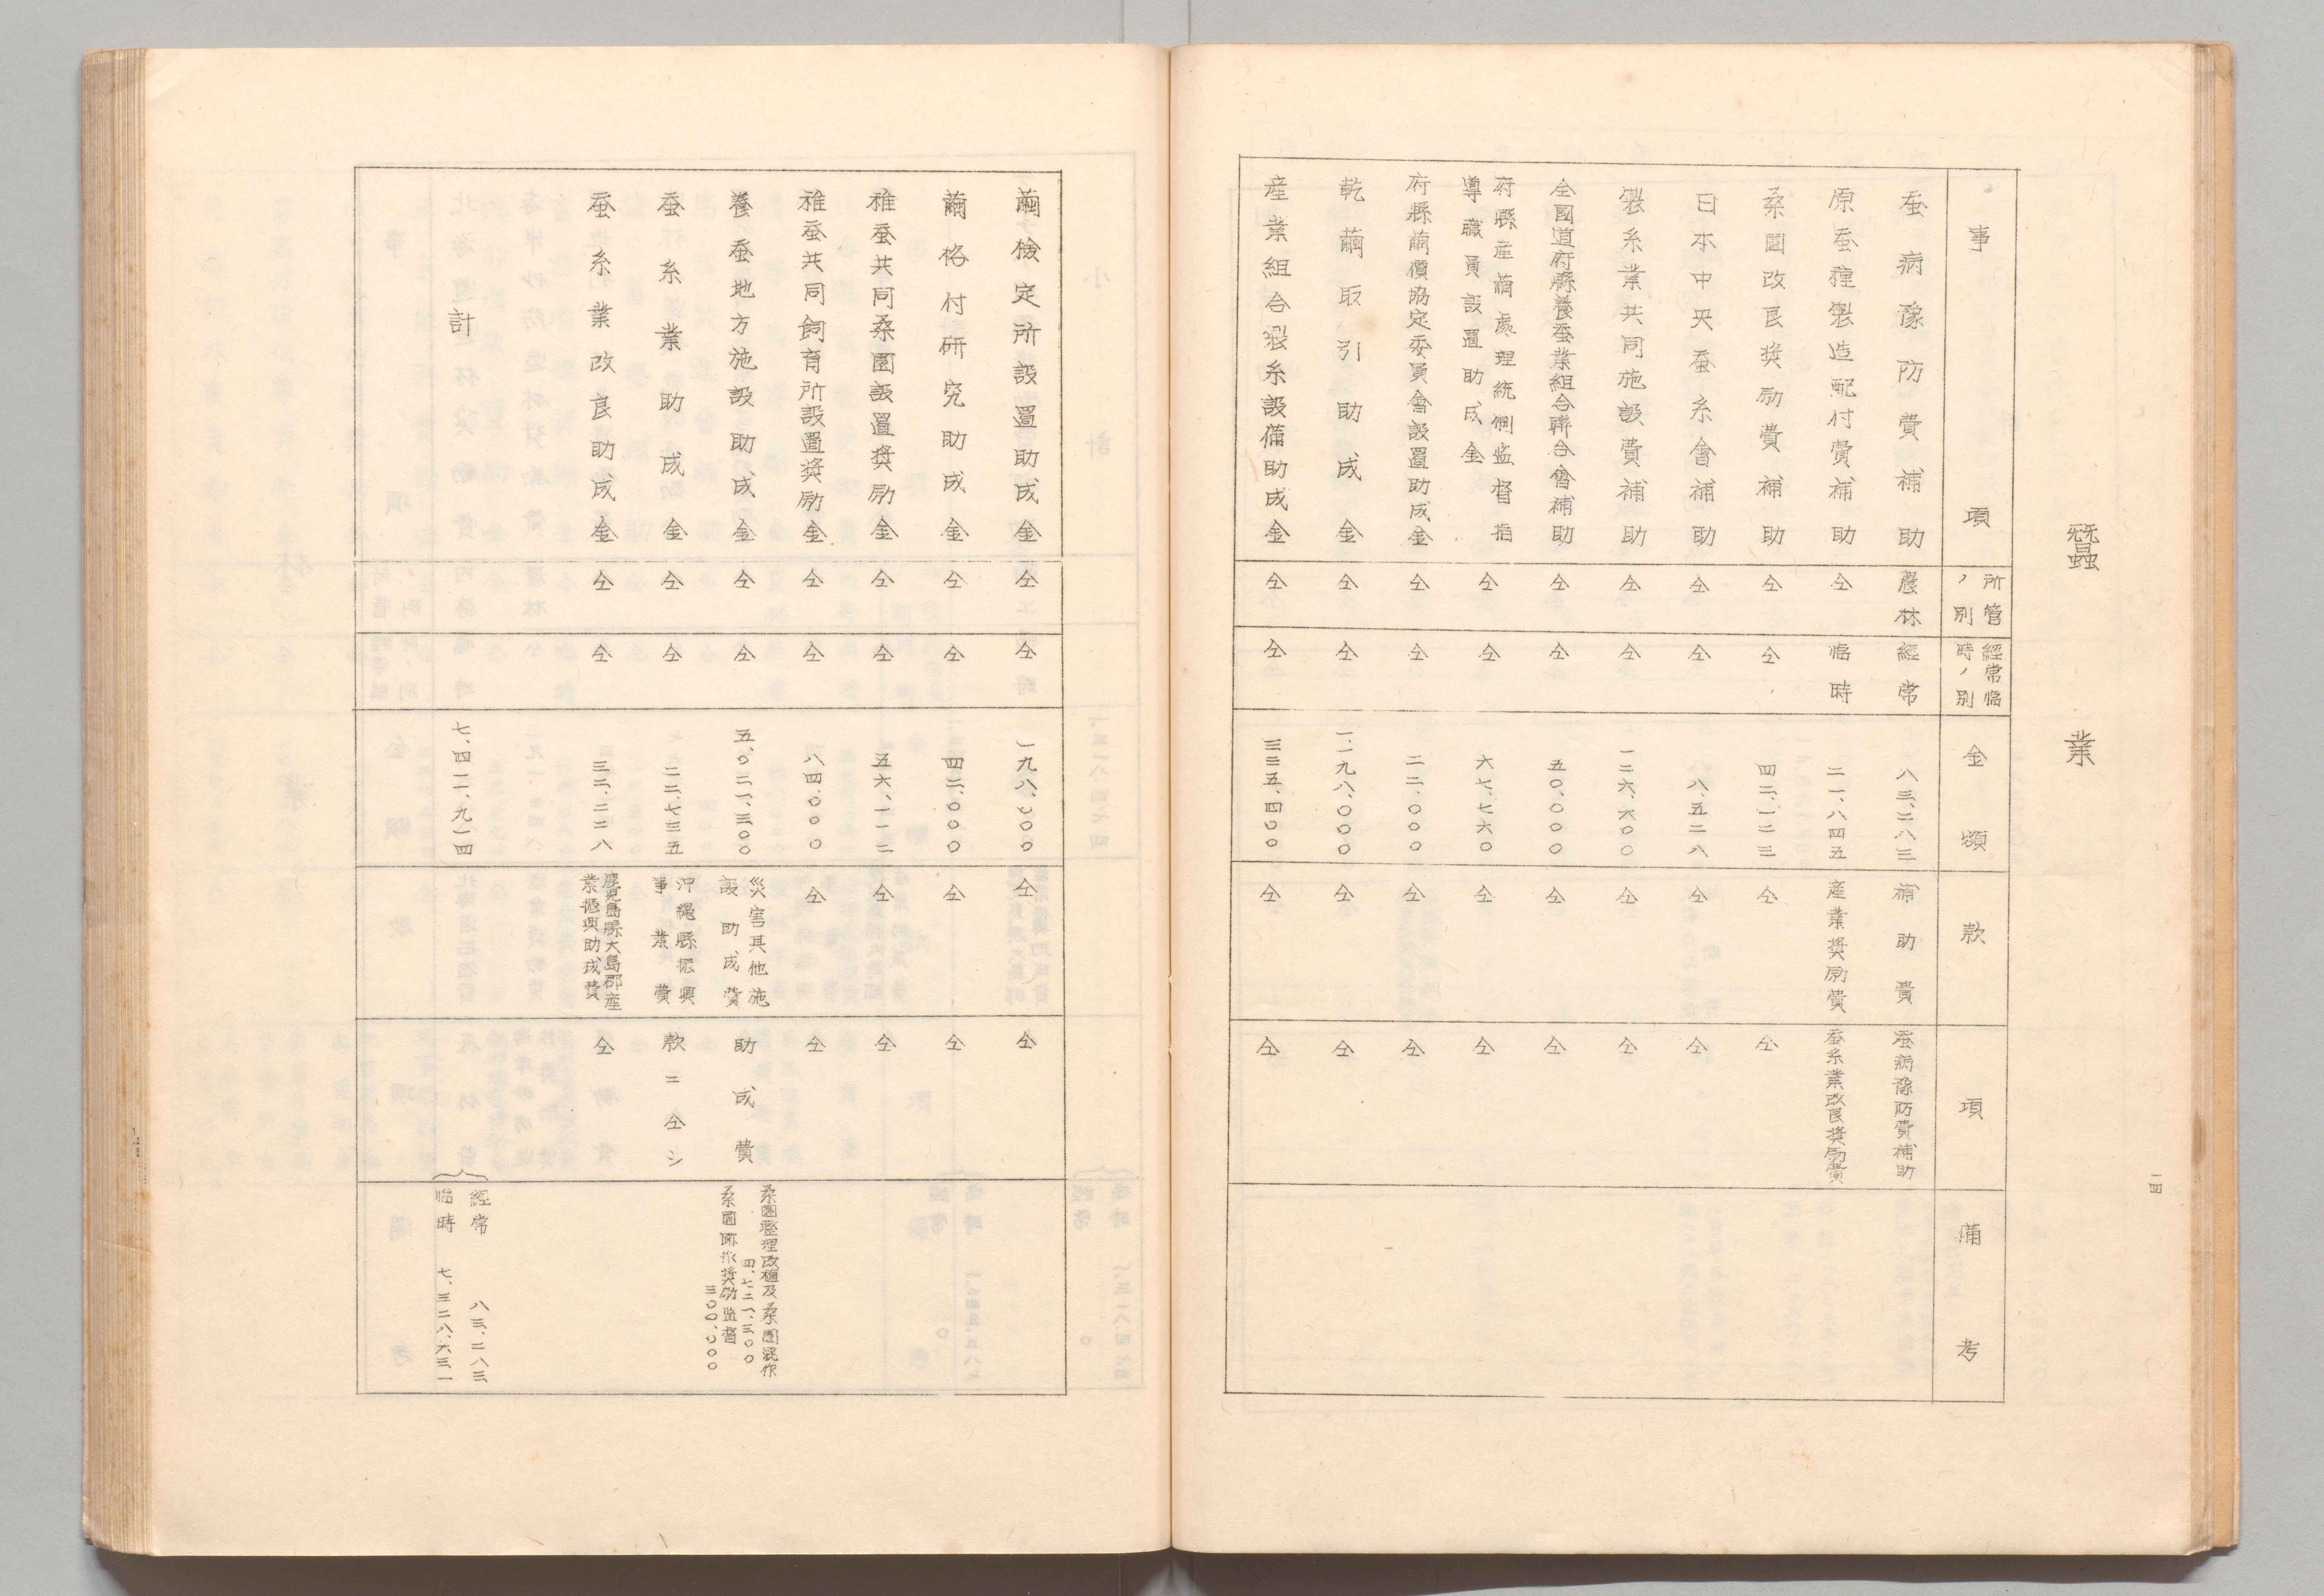 二四
蠶業
事項 所管ノ別 經常臨時ノ別 金額 款 項 備考
蚕病豫防費補助 農林 經常 八三、二八三 補助費 蚕病豫防費補助
原蚕種製造配付費補助 仝 臨時 二一、八四五 産業奬励費 蚕糸業改良奬励費
桑園改良奬励費補助 仝 仝 四二、一二三 仝 仝
日本中央蚕糸會補助 仝 仝 八、五二八 仝 仝
製糸業共同施設費補助 仝 仝 一二六、六〇〇 仝 仝
全國道府縣養蚕業組合聯合會補助 仝 仝 五〇、〇〇〇 仝 仝
府縣産繭處理統制監督指導職員設置助成金 仝 仝 六七、七六〇 仝 仝
府縣繭價協定委員會設置助成金 仝 仝 二二、〇〇〇 仝 仝
乾繭取引助成金 仝 仝 一、一九八、〇〇〇 仝 仝
産業組合製糸設備助成金 仝 仝 三三五、四〇〇 仝 仝
繭檢定所設置助成金 仝 仝 一九八、〇〇〇 仝 仝
繭格付研究助成金 仝 仝 四二、〇〇〇 仝 仝
稚蚕共同桑園設置奬励金 仝 仝 五六、一一二 仝 仝
稚蚕共同飼育所設置奬励金 仝 仝 八四、〇〇〇 仝 仝
養蚕地方施設助成金 仝 仝 五、〇二一、三〇〇 災害其他施設助成費 助成費 桑園整理改植及桑園混作 四、七二一、三〇〇 桑園間作奬励監督 三〇〇、〇〇〇
蚕糸業助成金 仝 仝 二二、七三五 沖縄縣振興事業費 款ニ仝シ
蚕糸業改良助成金 仝 仝 三二、二二八 鹿児島縣大島郡産業振興助成費 仝
計 七、四一一、九一四 經常 八三、二八三
臨時 七、三二八、六三一